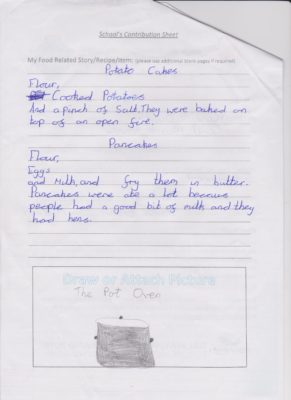 School's Contribution Sheet
My Food Related Story/Recipe/Item: (please use additional blank pages if required)
Potato Cakes
Flour,
Cooked Potatoes
And a pinch of Salt. They were baked on
top of an open fire.
Pancakes
Flour,
Eggs
and Milk, and fry them in butter.
Pancakes were ate a lot because
people had a good bit of milk and they
had hens.
Draw or Attach Picture
The Pot Oven